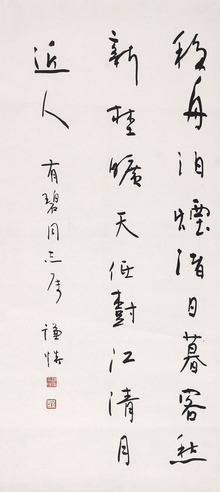 移舟泊煙渚日暮客愁
新埜曠天低樹江清月
近人 有碧同志属 謙慎